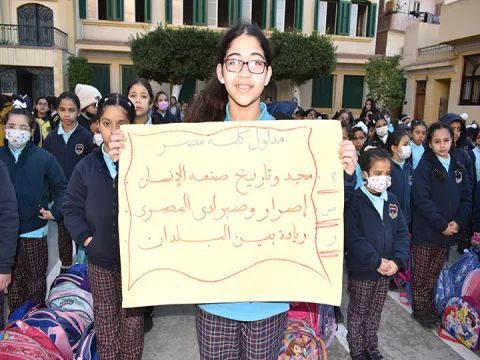 مدلول كلمة مصر
م مجد وتاريخ صنعه الإنسان
ص إصرار وصبر ابدى المصرى
ر ريادة بين البلدان